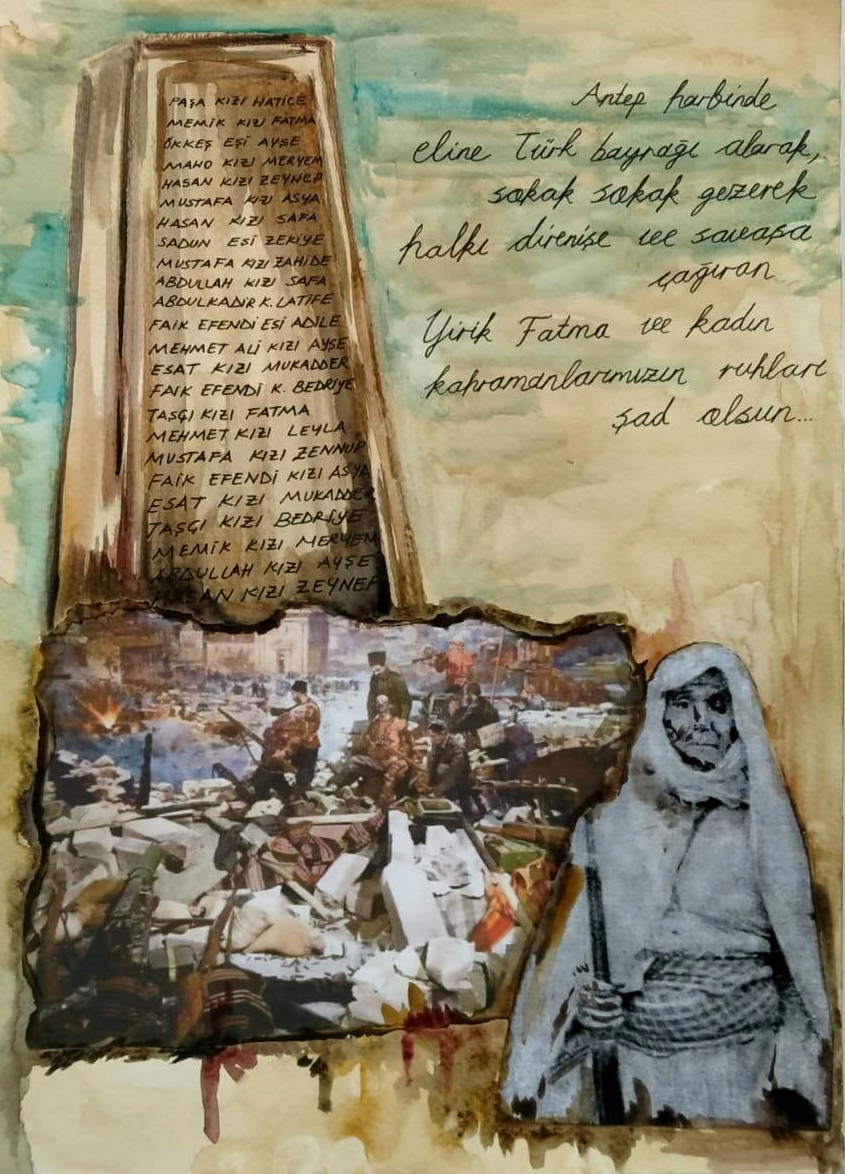 PAŞA KIZI HATİCE
MEMİK KIZI FATMA
ÖKKEŞ EŞİ AYŞE
MAHO KIZI MERYEM
HASAN KIZI ZEYNEP
MUSTAFA KIZI ASYA
HASAN KIZI SAFA
SADUN EŞİ ZEKİYE
MUSTAFA KIZI ZAHİDE
ABDULLAH KIZI SAFA
ABDULKADİR K. LATİFE
FAİK EFENDİ EŞİ ADİLE
MEHMET ALİ KIZI AYŞE
ESAT KIZI MUKADDER
FAİK EFENDİ K. BEDRİYE
TAŞÇI KIZI FATMA
MEHMET KIZI LEYLA
MUSTAFA KIZI ZENNUP
FAİK EFENDİ KIZI ASYA
ESAT KIZI MUKADDER
TAŞÇI KIZI BEDRİYE
MEMİK KIZI MERYEM
ABDULLAH KIZI AYŞE
HASAN KIZI ZEYNEP
Antep harbinde
eline Türk bayrağı alarak,
sokak sokak gezerek
halkı direnişe ve savaşa
çağıran
Yirik Fatma ve kadın
kahramanlarımızın ruhları
şad olsun...